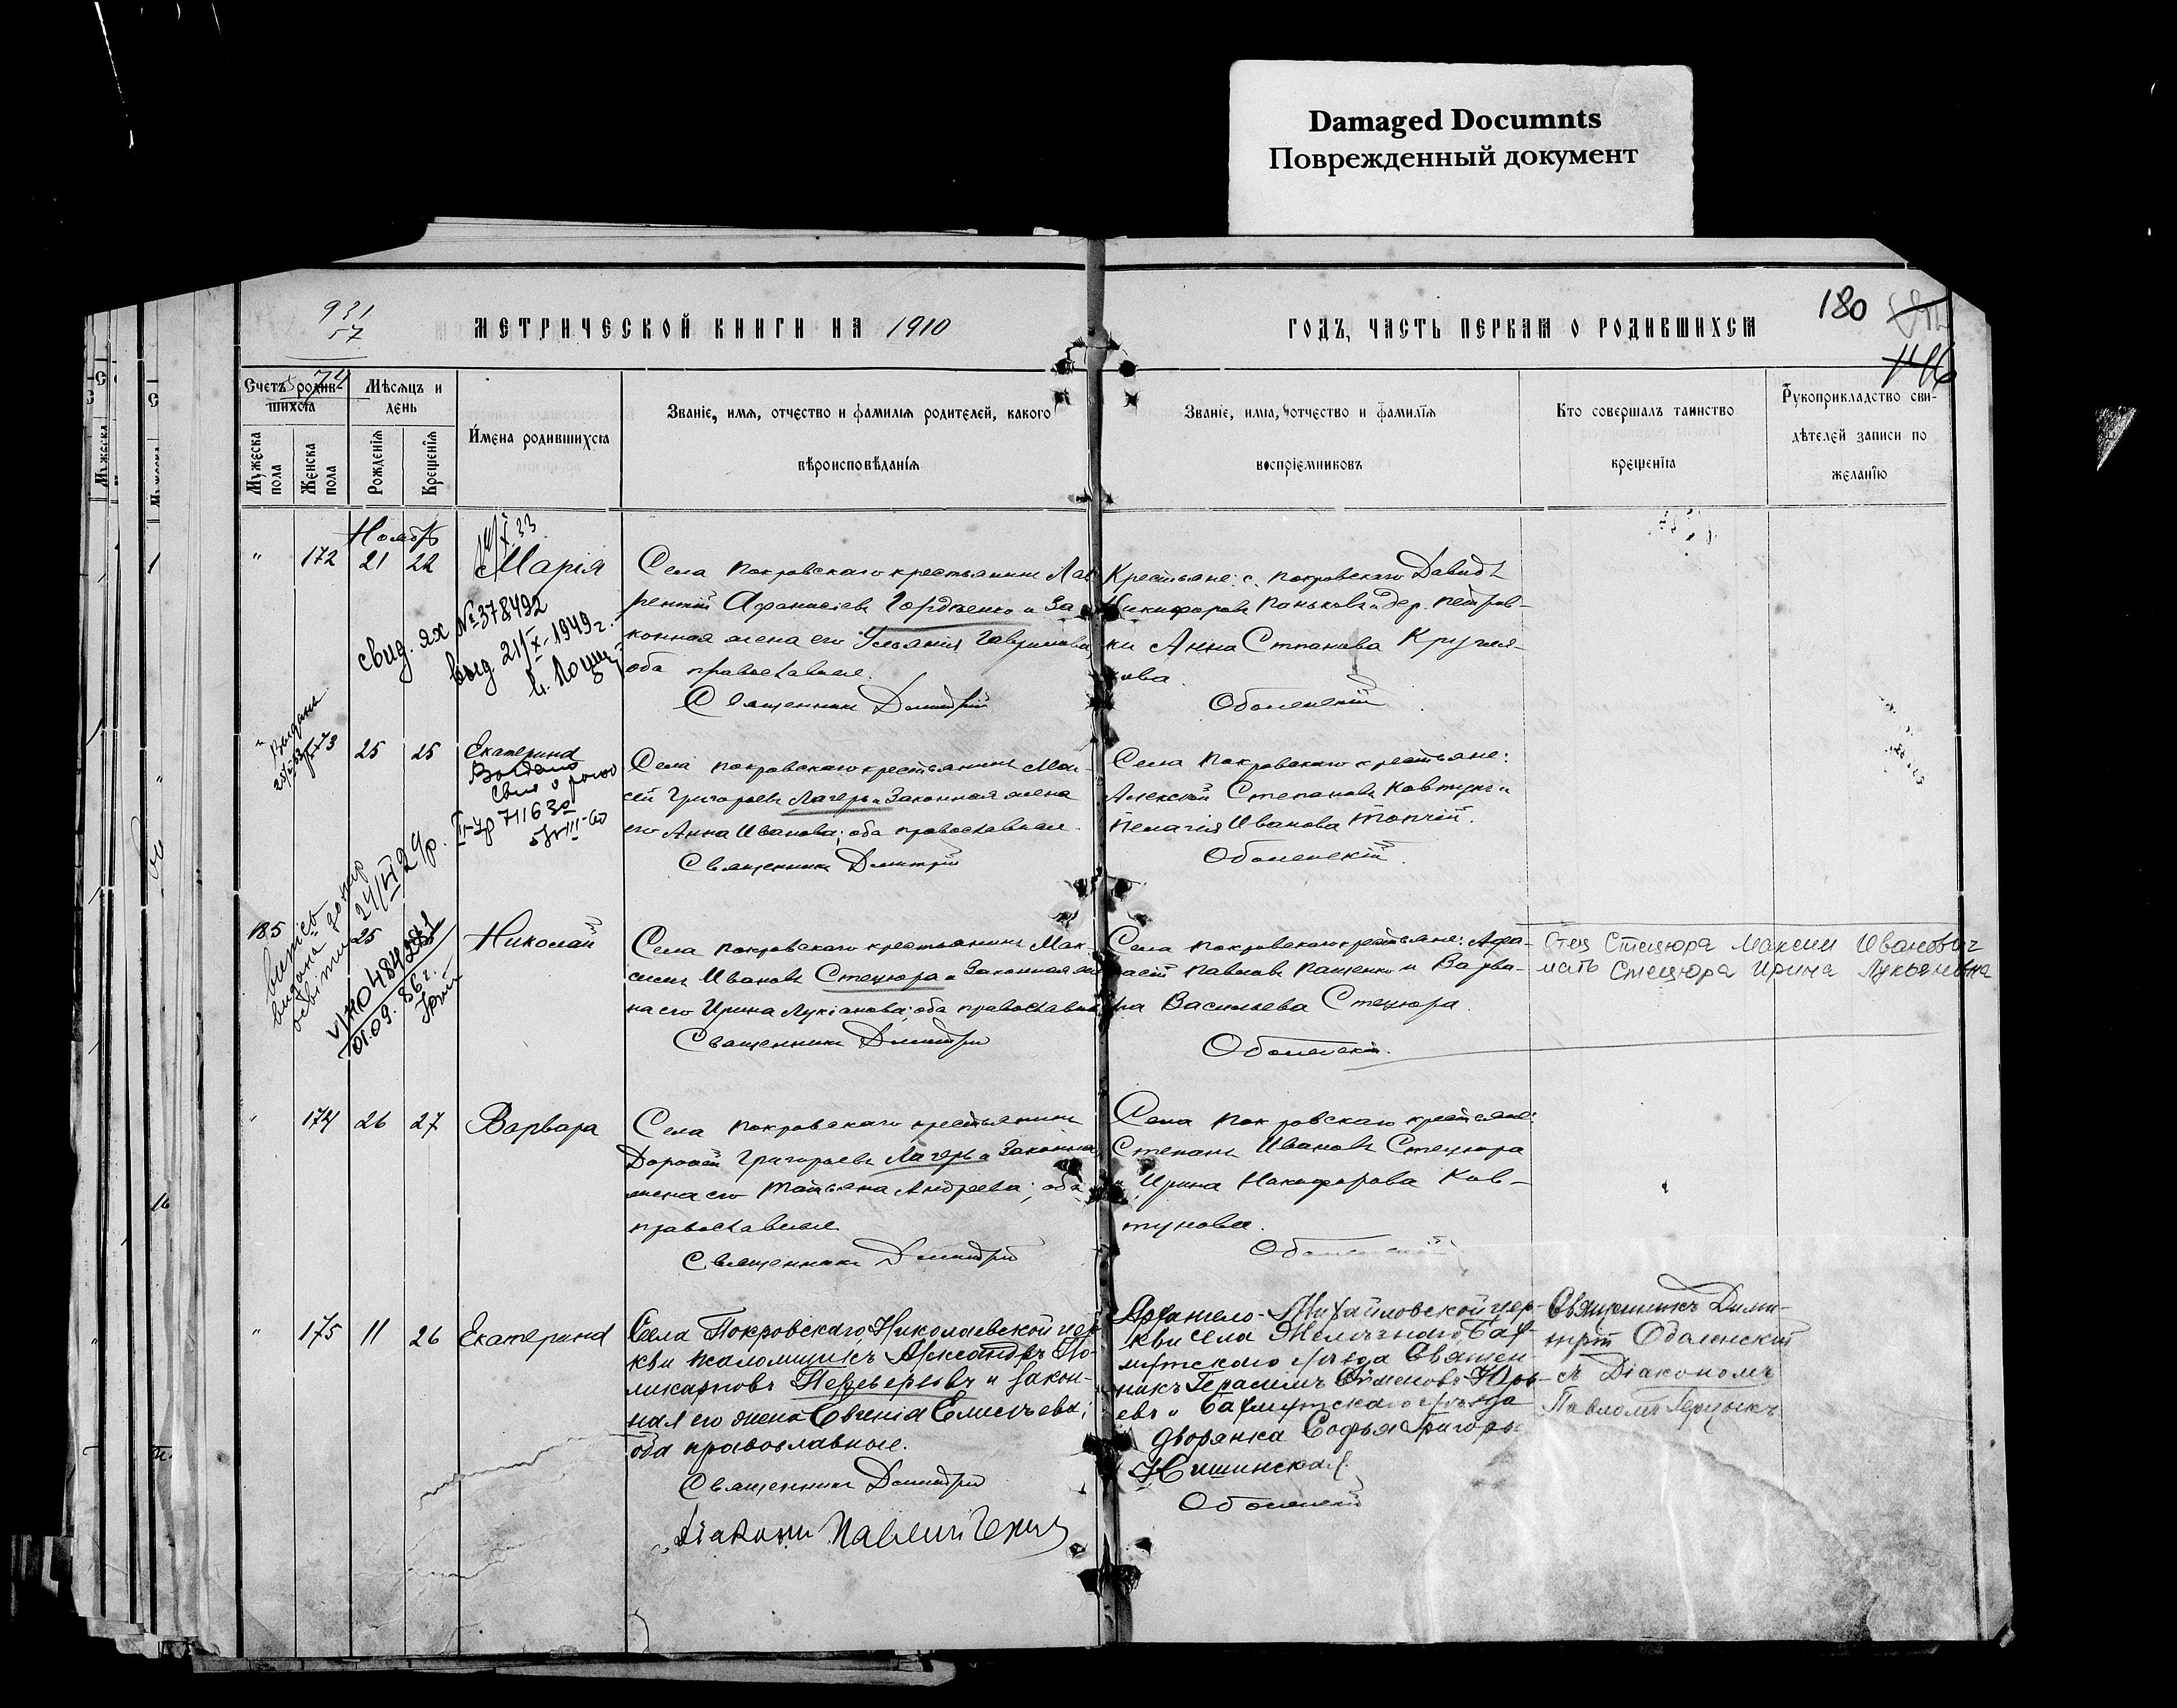 Damaged Documnts
Поврежденный документ
931
57
МЕТРИЧЕСКОЙ КНИГИ НА 1910
ГОДЪ, ЧАСТЬ ПЕРВАЯ О РОДИВШИХСЯ
180
146
Счетъ родив-
шихся
Мужеска пола
Женска пола
Мѣсяцъ и день
Рожденія
Крещенія
Имена родившихся
Званіе, имя, отчество и фамилія родителей, какого
вѣроисповѣданія
Званіе, имя, отчество и фамилія
воспріемниковъ
Кто совершалъ таинство
крещенія
Рукоприкладство сви-
дѣтелей записи по
желанію
Ноябрь
" 172 21 22 Марія
свид. ях №378492
выд. 21/X-1949г.
Села Покровскаго крестьянинъ Лав
рентій Афанасіевъ Гордіенко и за
конная жена его Ульянія Гаврилова
оба православные.
Священникъ Димитрій
Крестьяне: с. Покровскаго Давидъ
Никифоровъ Паньковъ и дер. Петров-
ки Анна Стпанова Кругля-
кова.
Оболенскій
" 25 25 Екатерина
711630
Села Покровскаго крестьянинъ Мои-
сей Григорьевъ Лагерь и законная жена
его Анна Иванова; оба православные.
Священникъ Дмитрій
Села Покровскаго крестьяне:
Алексѣй Степановъ Ковтунъ и
Пелагія Иванова Топчій.
Оболенскій.
185 25 Николай
витсіь видана
24/VI 29р.
VЯЮ 484281
01.09. 86г.
Села Покровскаго крестьянинъ Мак-
симъ Ивановъ Стецюра и законная же
на его Ирина Лукіанова; оба православные
Священникъ Дмитрій
Села Покровскаго крестьяне: Афа-
насій Павловъ Пащенко и Варва-
ра Васильева Стецюра.
Оболенскій.
Отец Стецюра Максим Иванович
мать Стецюра Ирина Лукьяновна
" 174 26 27 Варвара
Села Покровскаго крестьянинъ
Дорофей Григорьевъ Лагерь и законная
жена его Татьяна Андреева; оба
православные
Священникъ Димитрій
Села Покровскаго крестьяне:
Степанъ Ивановъ Стецюра
и Ирина Никифорова Ков-
тунова.
Оболенскій
" 175 11 26 Екатерина
Села Покровскаго, Николаевской цер
кви псаломщикъ Александръ По-
ликарповъ и закон-
ная его жена Евгенія Елисѣева;
оба православные.
Священникъ Димитрій
Діаконъ Павелъ Герцыкъ
Архангело-Михайловской цер-
кви села Бах-
мутскаго уѣзда Священ-
никъ Герасимъ Симеоновъ Юрь-
евъ и Бахмутскаго уѣзда
дворянка Софья Григорь
Оболенскій
Священникъ Дими-
трій Оболенскій
съ Діакономъ
Павломъ Герцыкъ